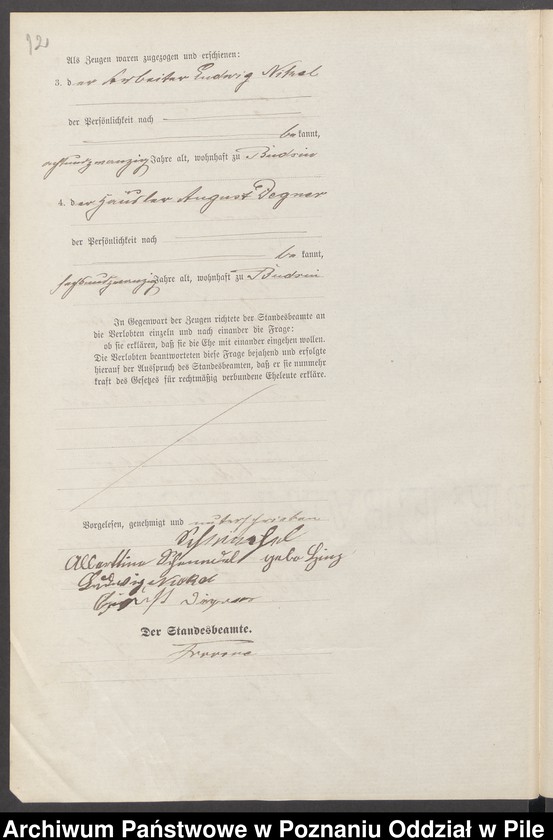 12
Als Zeugen waren zugezogen und erschienen:
3. der Arbeiter Ludwig
der Persönlichkeit nach
be kannt,
achtundzwanzig Jahre alt, wohnhaft zu Budsin
4. der Häusler August Degner
der Persönlichkeit nach
be kannt,
sechsundzwanzig Jahre alt, wohnhaft zu Budsin
In Gegenwart der Zeugen richtete der Standesbeamte an
die Verlobten einzeln und nach einander die Frage:
ob sie erklären, daß sie die Ehe mit einander eingehen wollen.
Die Verlobten beantworteten diese Frage bejahend und erfolgte
hierauf der Ausspruch des Standesbeamten, daß er sie nunmehr
kraft des Gesetzes für rechtmäßig verbundene Eheleute erkläre.
Vorgelesen, genehmigt und unterschrieben
Albertine gebo Hinz
Ludwig
August Degner
Der Standesbeamte.